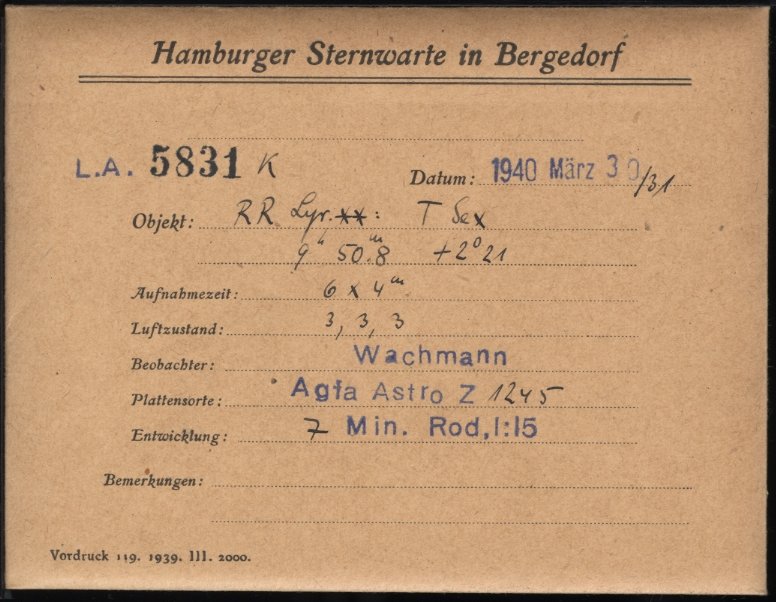 Hamburger Sternwarte in Bergedorf
L.A. 5831 K
Datum: 1940 März 30/31
Objekt: RR Lyr. **: T Sex
9ʰ 50ᵐ.8 +2⁰21
Aufnahmezeit: 6 x 4ᵐ
Luftzustand: 3, 3, 3
Beobachter: Wachmann
Plattensorte: Agfa Astro Z 1245
Entwicklung: 7 Min. Rod, 1:15
Bemerkungen:
Vordruck 119. 1939. III. 2000.